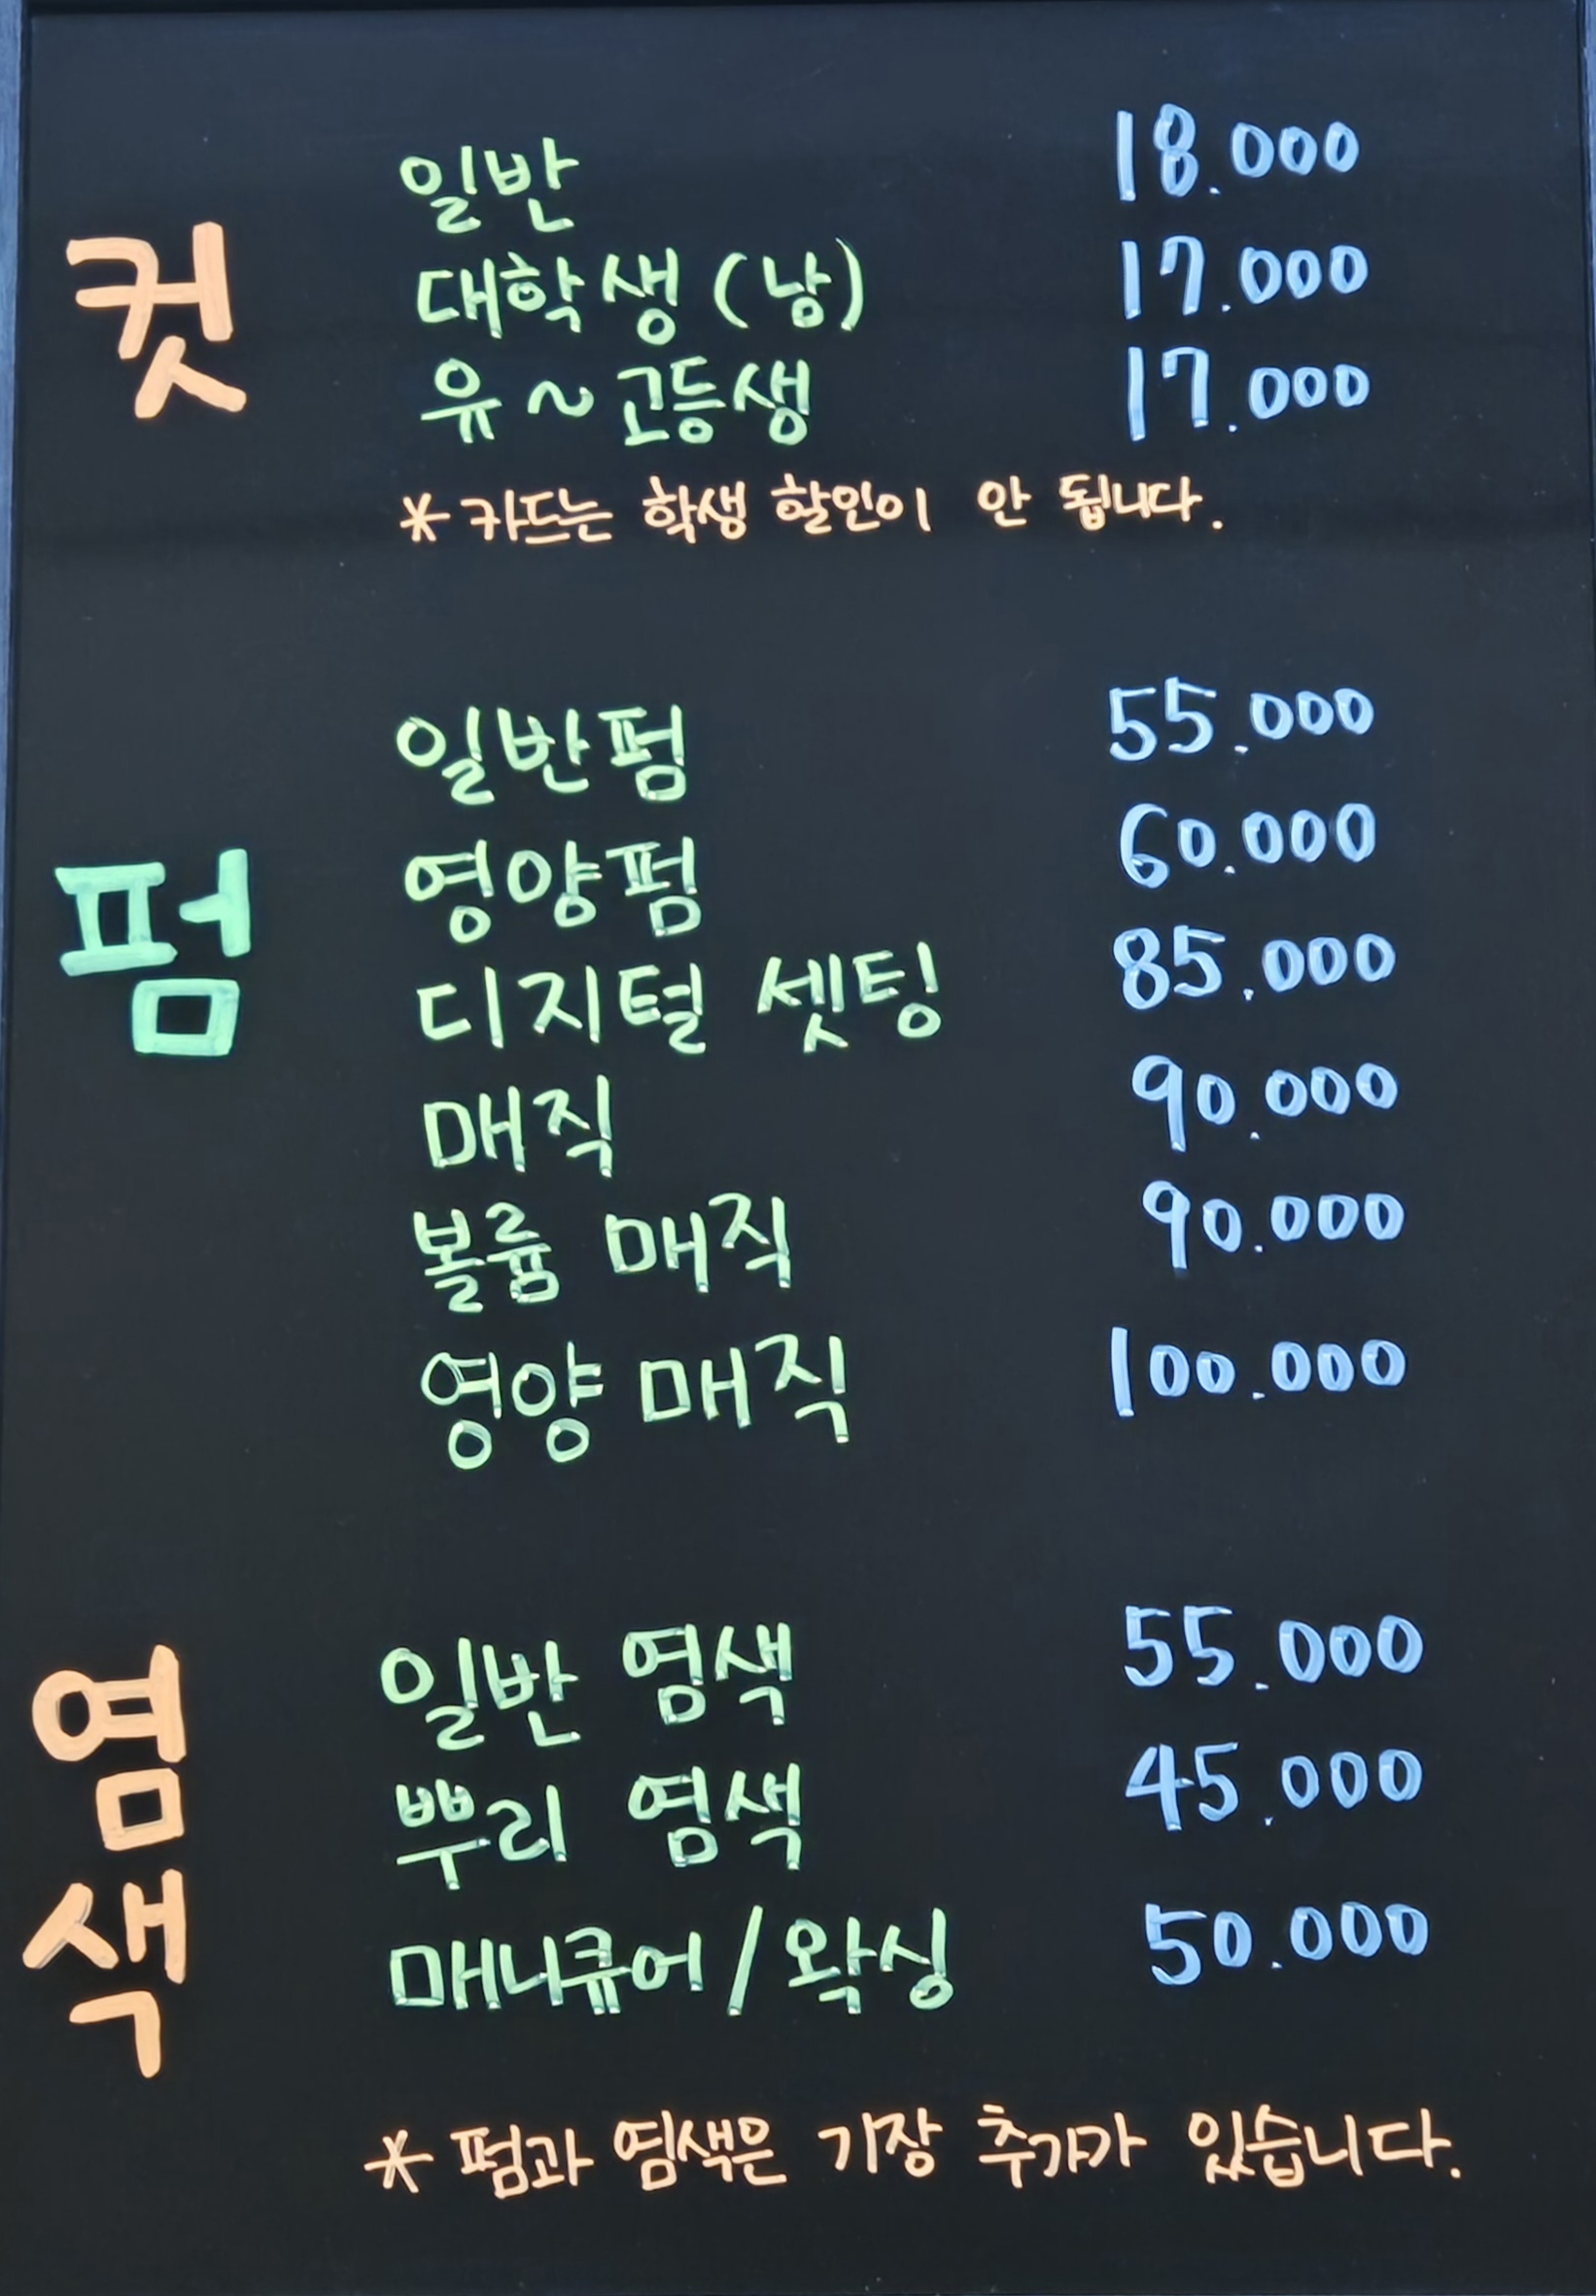 컷
일반 18.000
대학생 (낭) 17.000
유~고등생 17.000
* 카드는 학생 할인이 안 됩니다.
펌
일반펌 55.000
영양펌 60.000
디지털 셋팅 85.000
매직 90.000
볼륨 매직 90.000
영양 매직 100.000
염색
일반 염색 55.000
뿌리 염색 45.000
매니큐어/왁싱 50.000
* 펌과 염색은 기장 추가가 있습니다.